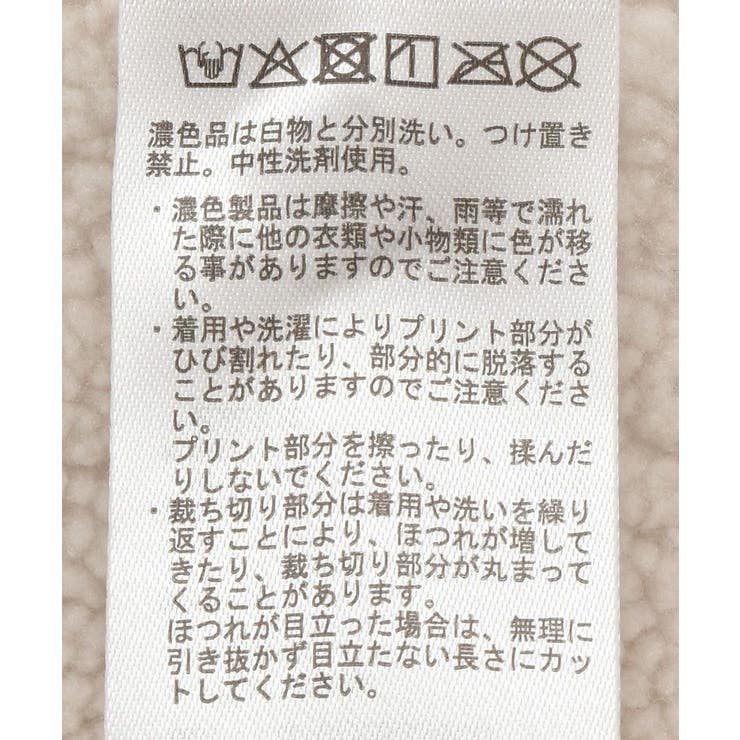 濃色品は白物と分別洗い。つけ置き
禁止。中性洗剤使用。
・濃色製品は摩擦や汗、雨等で濡れ
た際に他の衣類や小物類に色が移
る事がありますのでご注意くださ
い。
・着用や洗濯によりプリント部分が
ひび割れたり、部分的に脱落する
ことがありますのでご注意くださ
い。
プリント部分を擦ったり、揉んだ
りしないでください。
・裁ち切り部分は着用や洗いを繰り
返すことにより、ほつれが増して
きたり、裁ち切り部分が丸まって
くることがあります。
ほつれが目立った場合は、無理に
引き抜かず目立たない長さにカッ
トしてください。